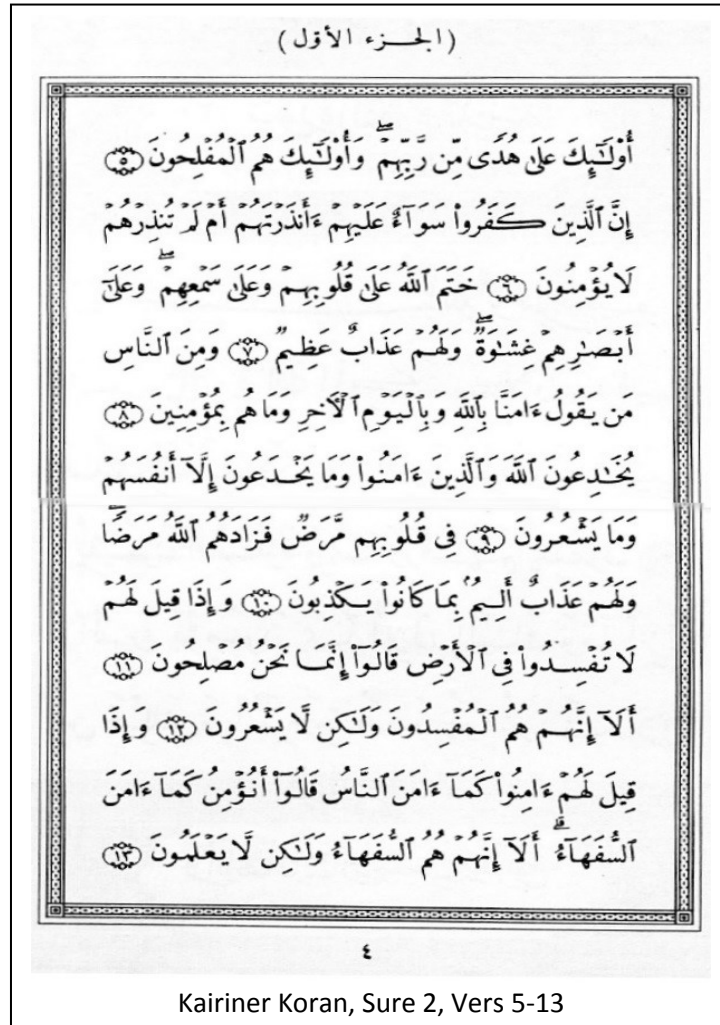 (الجـزء الأول)
أُوْلَـٰٓئِكَ عَلَىٰ هُدًى مِّن رَّبِّهِمْۖ وَأُوْلَـٰٓئِكَ هُمُ ٱلْمُفْلِحُونَ ٥
إِنَّ ٱلَّذِينَ كَفَرُواْ سَوَآءٌ عَلَيْهِمْ ءَأَنذَرْتَهُمْ أَمْ لَمْ تُنذِرْهُمْ
لَا يُؤْمِنُونَ ٦ خَتَمَ ٱللَّهُ عَلَىٰ قُلُوبِهِمْ وَعَلَىٰ سَمْعِهِمْۖ وَعَلَىٰٓ
أَبْصَـٰرِهِمْ غِشَـٰوَةٌۖ وَلَهُمْ عَذَابٌ عَظِيمٌ ٧ وَمِنَ ٱلنَّاسِ
مَن يَقُولُ ءَامَنَّا بِٱللَّهِ وَبِٱلْيَوْمِ ٱلْأَخِرِ وَمَا هُم بِمُؤْمِنِينَ ٨
يُخَـٰدِعُونَ ٱللَّهَ وَٱلَّذِينَ ءَامَنُواْ وَمَا يَخْدَعُونَ إِلَّآ أَنفُسَهُمْ
وَمَا يَشْعُرُونَ ٩ فِى قُلُوبِهِم مَّرَضٌ فَزَادَهُمُ ٱللَّهُ مَرَضًاۖ
وَلَهُمْ عَذَابٌ أَلِيمُۢ بِمَا كَانُواْ يَكْذِبُونَ ١٠ وَإِذَا قِيلَ لَهُمْ
لَا تُفْسِدُواْ فِى ٱلْأَرْضِ قَالُوٓاْ إِنَّمَا نَحْنُ مُصْلِحُونَ ١١
أَلَآ إِنَّهُمْ هُمُ ٱلْمُفْسِدُونَ وَلَـٰكِن لَّا يَشْعُرُونَ ١٢ وَإِذَا
قِيلَ لَهُمْ ءَامِنُواْ كَمَآ ءَامَنَ ٱلنَّاسُ قَالُوٓاْ أَنُؤْمِنُ كَمَآ ءَامَنَ
ٱلسُّفَهَآءُۗ أَلَآ إِنَّهُمْ هُمُ ٱلسُّفَهَآءُ وَلَـٰكِن لَّا يَعْلَمُونَ ١٣
٤
Kairiner Koran, Sure 2, Vers 5-13